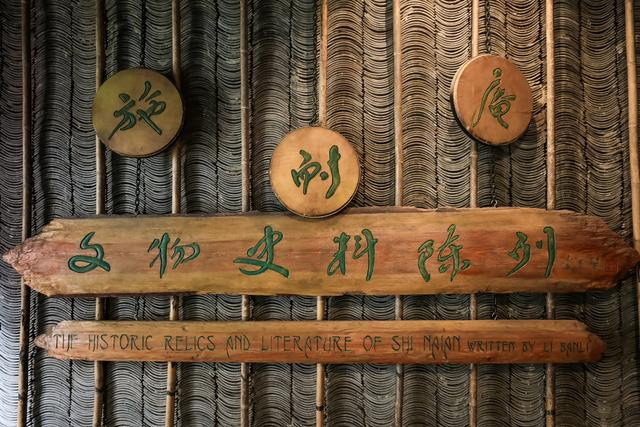 施耐庵
文物史料陈列
THE HISTORIC RELICS AND LITERATURE OF SHI NAIAN WRITTEN BY LI BANLI